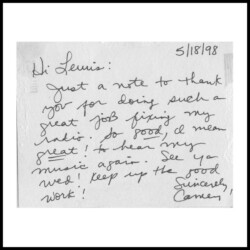 5/18/98
Hi Lewis:
Just a note to thank
you for doing such a
great job fixing my
radio. So good, I mean
great! to hear my
music again. See ya
wed! Keep up the good
work! Sincerely,